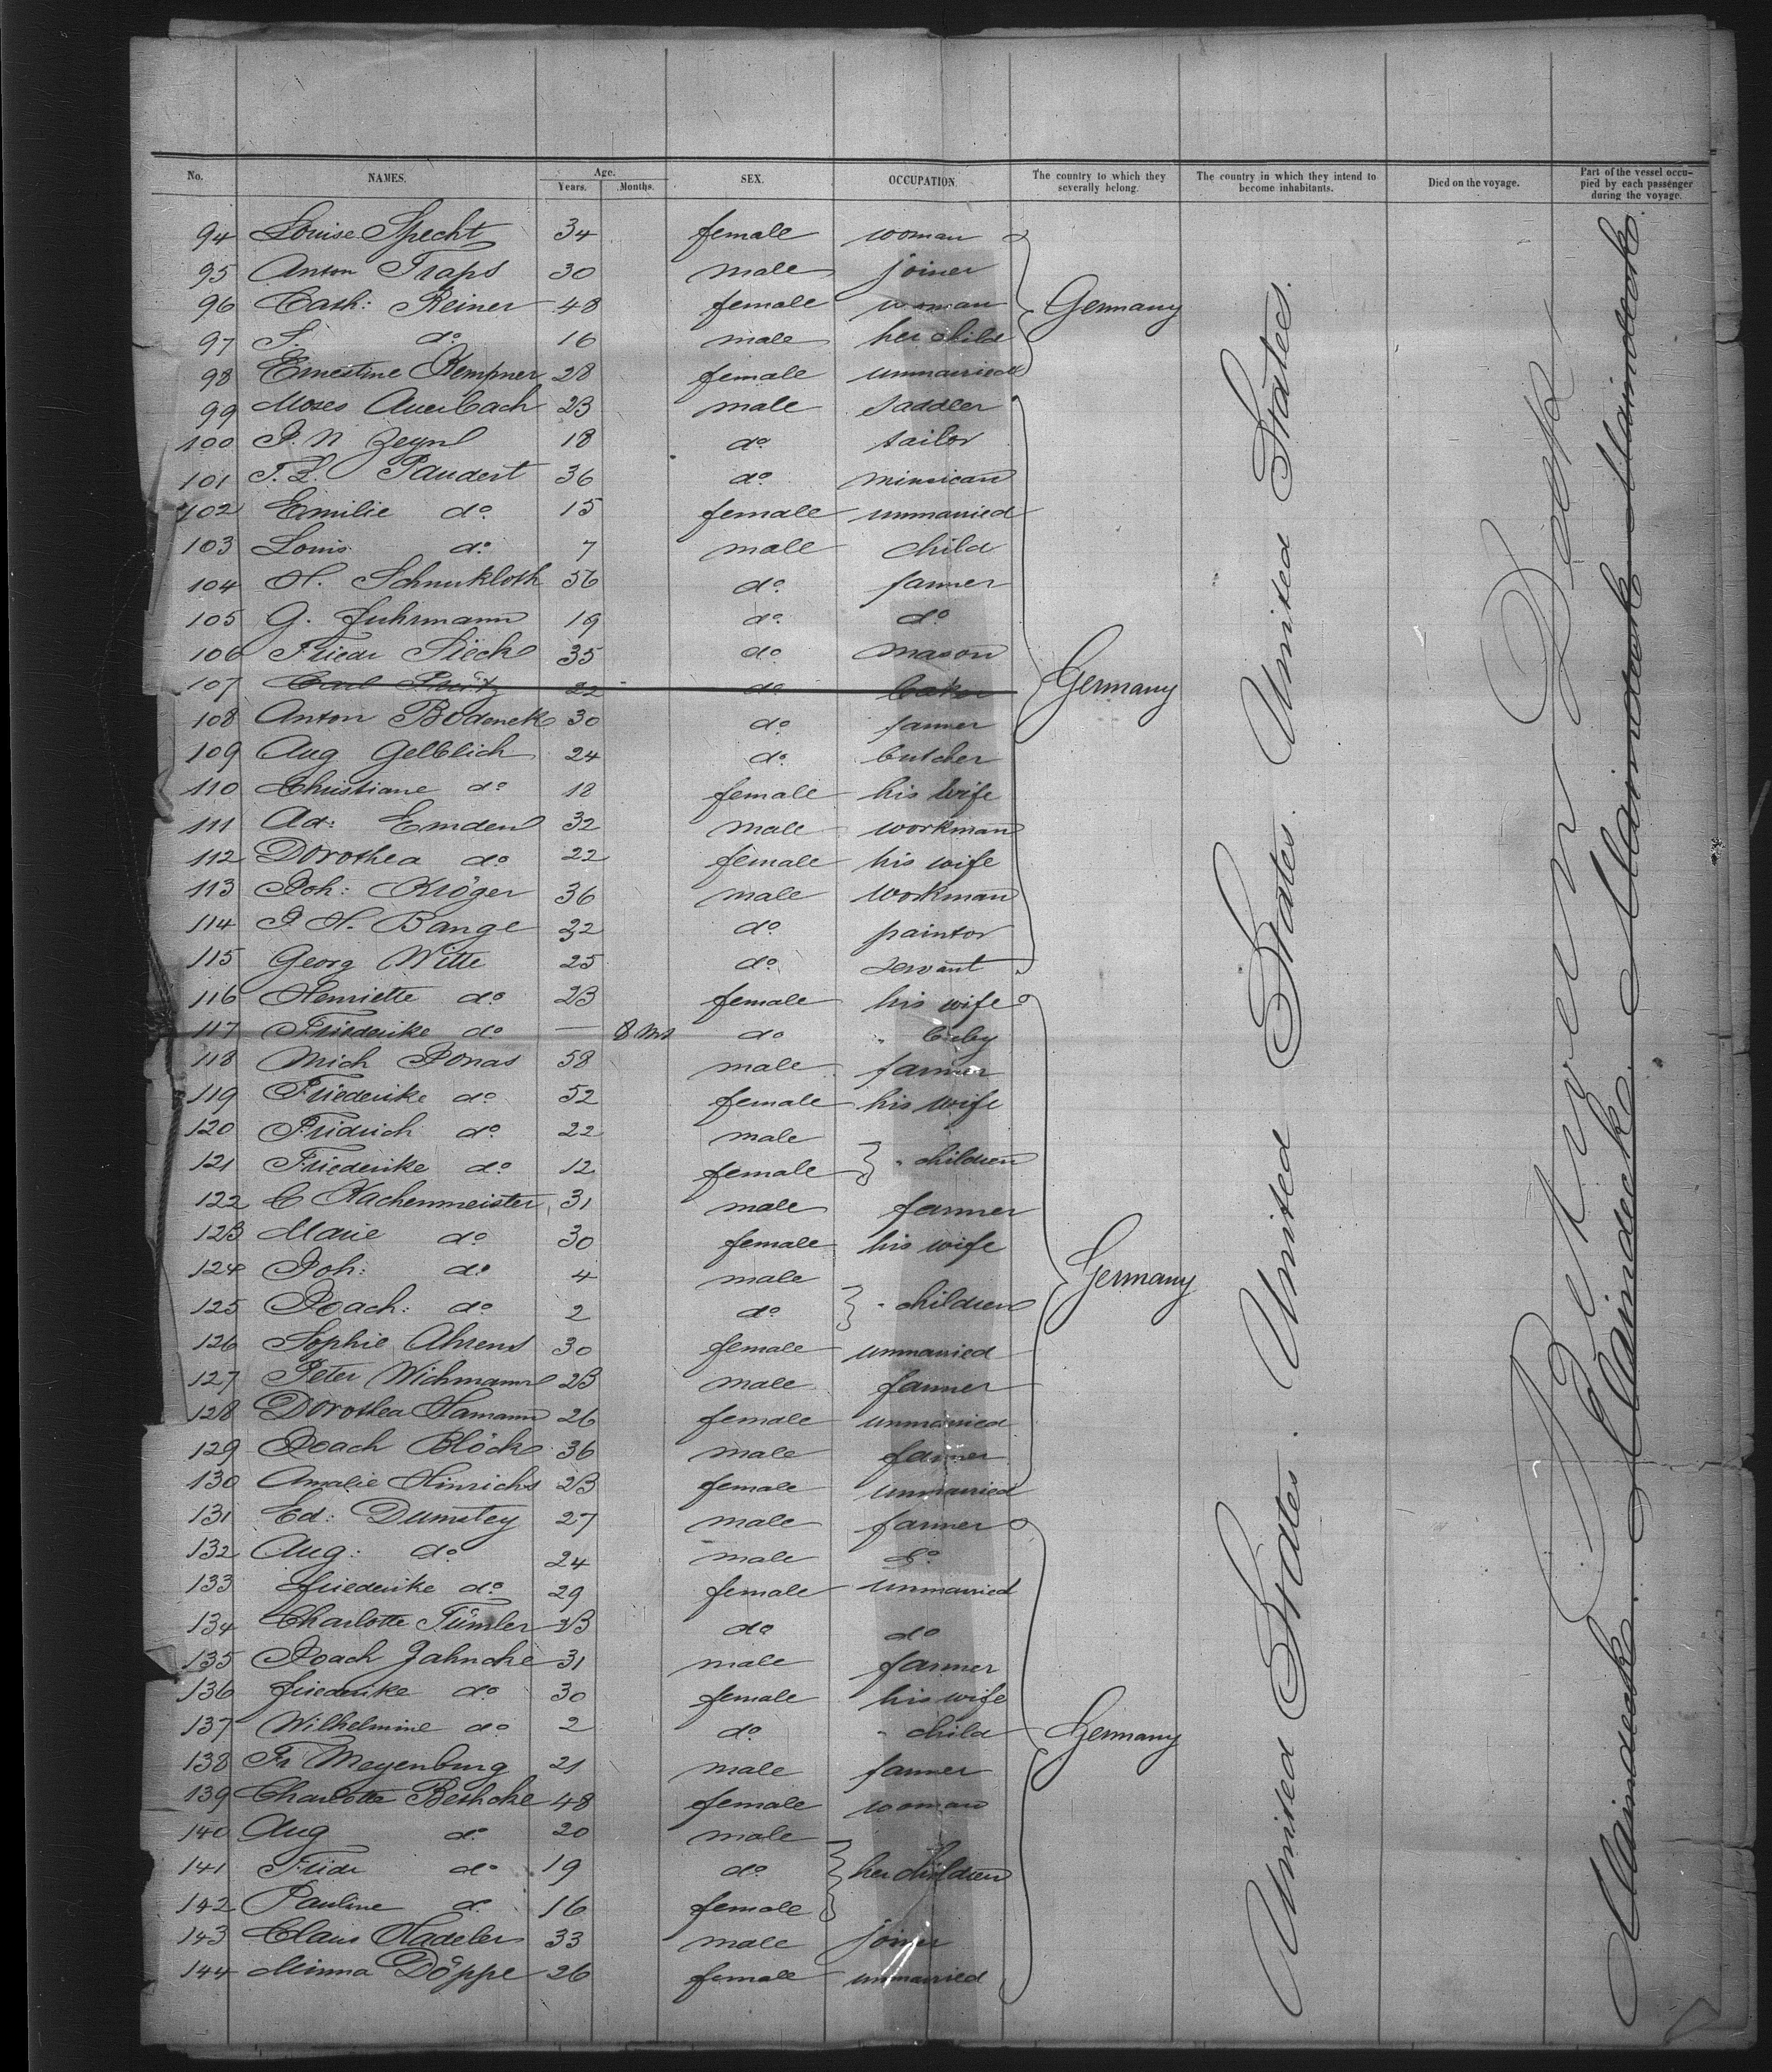 No. NAMES. Age. Years. Months. SEX. OCCUPATION. The country to which they severally belong. The country in which they intend to become inhabitants. Died on the voyage. Part of the vessel occupied by each passenger during the voyage.
94 Louise Specht 34 female woman
95 Anton Traps 30 male joiner
96 Cath: Reiner 48 female woman Germany
97 S. do 16 male her child
98 Ernestine Kempner 28 female unmarried
99 Moses Auerbach 23 male saddler
100 J. N Zeyn 18 do tailor
101 T. L. Paudert 36 do
102 Emilie do 15 female unmarried
103 Louis do 7 male child
104 H. Schnukloth 56 do farmer
105 G. Fuhrmann 19 do do
106 Friedr Sieck 35 do mason
107 Carl 22 do baker Germany
108 Anton Bodenek 30 do farmer
109 Aug Gelblich 24 do butcher
110 Christiane do 18 female his wife
111 Ad: Emden 32 male workman
112 Dorothea do 22 female his wife
113 Joh: Kröger 36 male workman
114 J H. Bange 22 do painter
115 Georg Witte 25 do servant
116 Henriette do 23 female his wife
117 Friederike do — 8 Mts do " baby
118 Mich Jonas 58 male farmer
119 Friederike do 52 female his wife
120 Fridrich do 22 male
121 Friederike do 12 female " children
122 C Kachenmeister 31 male farmer
123 Marie do 30 female his wife
124 Joh: do 4 male Germany
125 Joach: do 2 do " children
126 Sophie Ahrens 30 female unmarried
127 Peter Wichmann 23 male farmer
128 Dorothea Hamann 26 female unmarried
129 Joach Blöck 36 male farmer
130 Amalie Hinrichs 23 female unmarried
131 Ed: Dumstey 27 male farmer
132 Aug: do 24 male do
133 Friederike do 29 female unmarried
134 Charlotte Tümler 23 do do
135 Joach Jahncke 31 male farmer
136 Friederike do 30 female his wife
137 Wilhelmine do 2 do " child Germany
138 Fr Meyenburg 21 male farmer
139 Charlotte Beshcke 48 female woman
140 Aug do 20 male
141 Fridr do 19 do her children
142 Pauline do 16 female
143 Claus Hadeler 33 male joiner
144 Minna Döppe 26 female unmarried
United States. United States. United States. United States.
Between Deck
Maindeck. Maindeck. Maindeck Maindeck